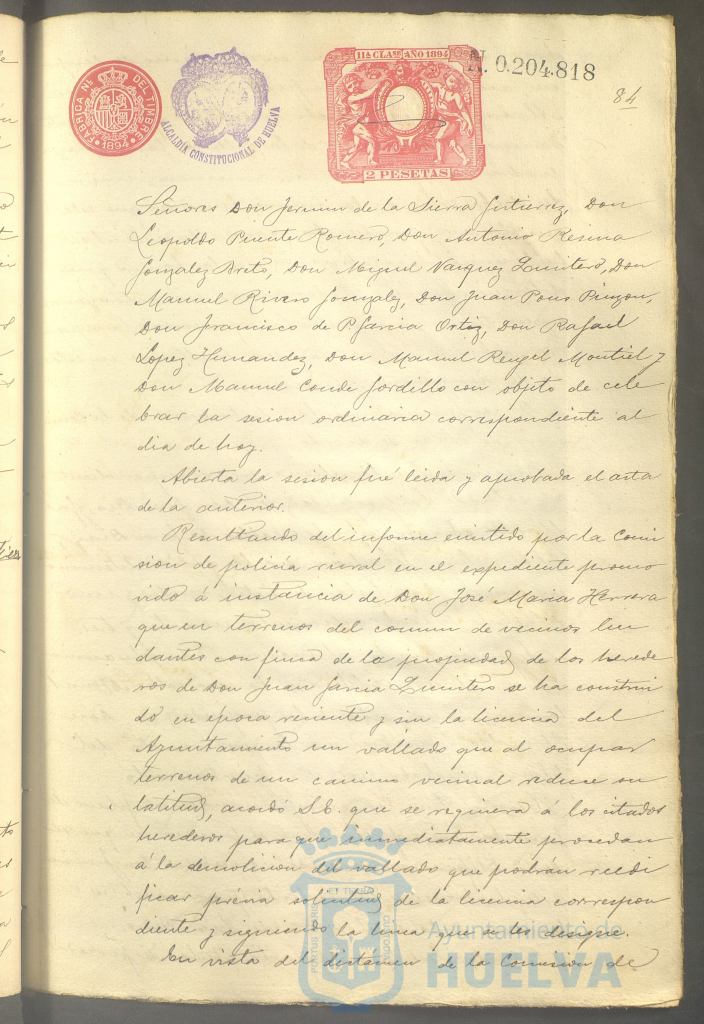 FABRICA NL. DEL TIMBRE
1894
ALCALDIA CONSTITUCIONAL DE HUELVA
11A CLASE AÑO 1894
2 PESETAS
N. 0.204.818
84
Señores Don Fermin de la Sierra Gutierrez, Don
Leopoldo Puente Romero, Don Antonio Resina
Gonzalez Breto, Don Miguel Vazquez Quintero, Don
Manuel Rivero Gonzalez, Don Juan Pons Pinzon,
Don Francisco de P. Garcia Ortiz, Don Rafael
Lopez Hernandez, Don Manuel Rengel Montiel y
Don Manuel Conde Gordillo con objeto de cele
brar la sesion ordinaria correspondiente al
dia de hoy.
Abierta la sesion fué leida y aprobada el acta
de la anterior.
Resultando del informe emitido por la Comi
sion de policía rural en el expediente promo
vido á instancia de Don José Maria Herrera
que en terrenos del comun de vecinos lin
dantes con finca de la propiedad de los herede
ros de Don Juan Garcia Quintero se ha construi
do en época reciente y sin la licencia del
Ayuntamiento un vallado que al ocupar
terrenos de un camino vecinal reduce su
latitud, acordó S.E. que se requiera á los citados
herederos para que inmediatamente procedan
á la demolicion del vallado que podrán reedi
ficar prévia solicitud de la licencia correspon
diente y siguiendo la linea que se les designe.
En vista del dictamen de la Comision de
Ayuntamiento de
HUELVA